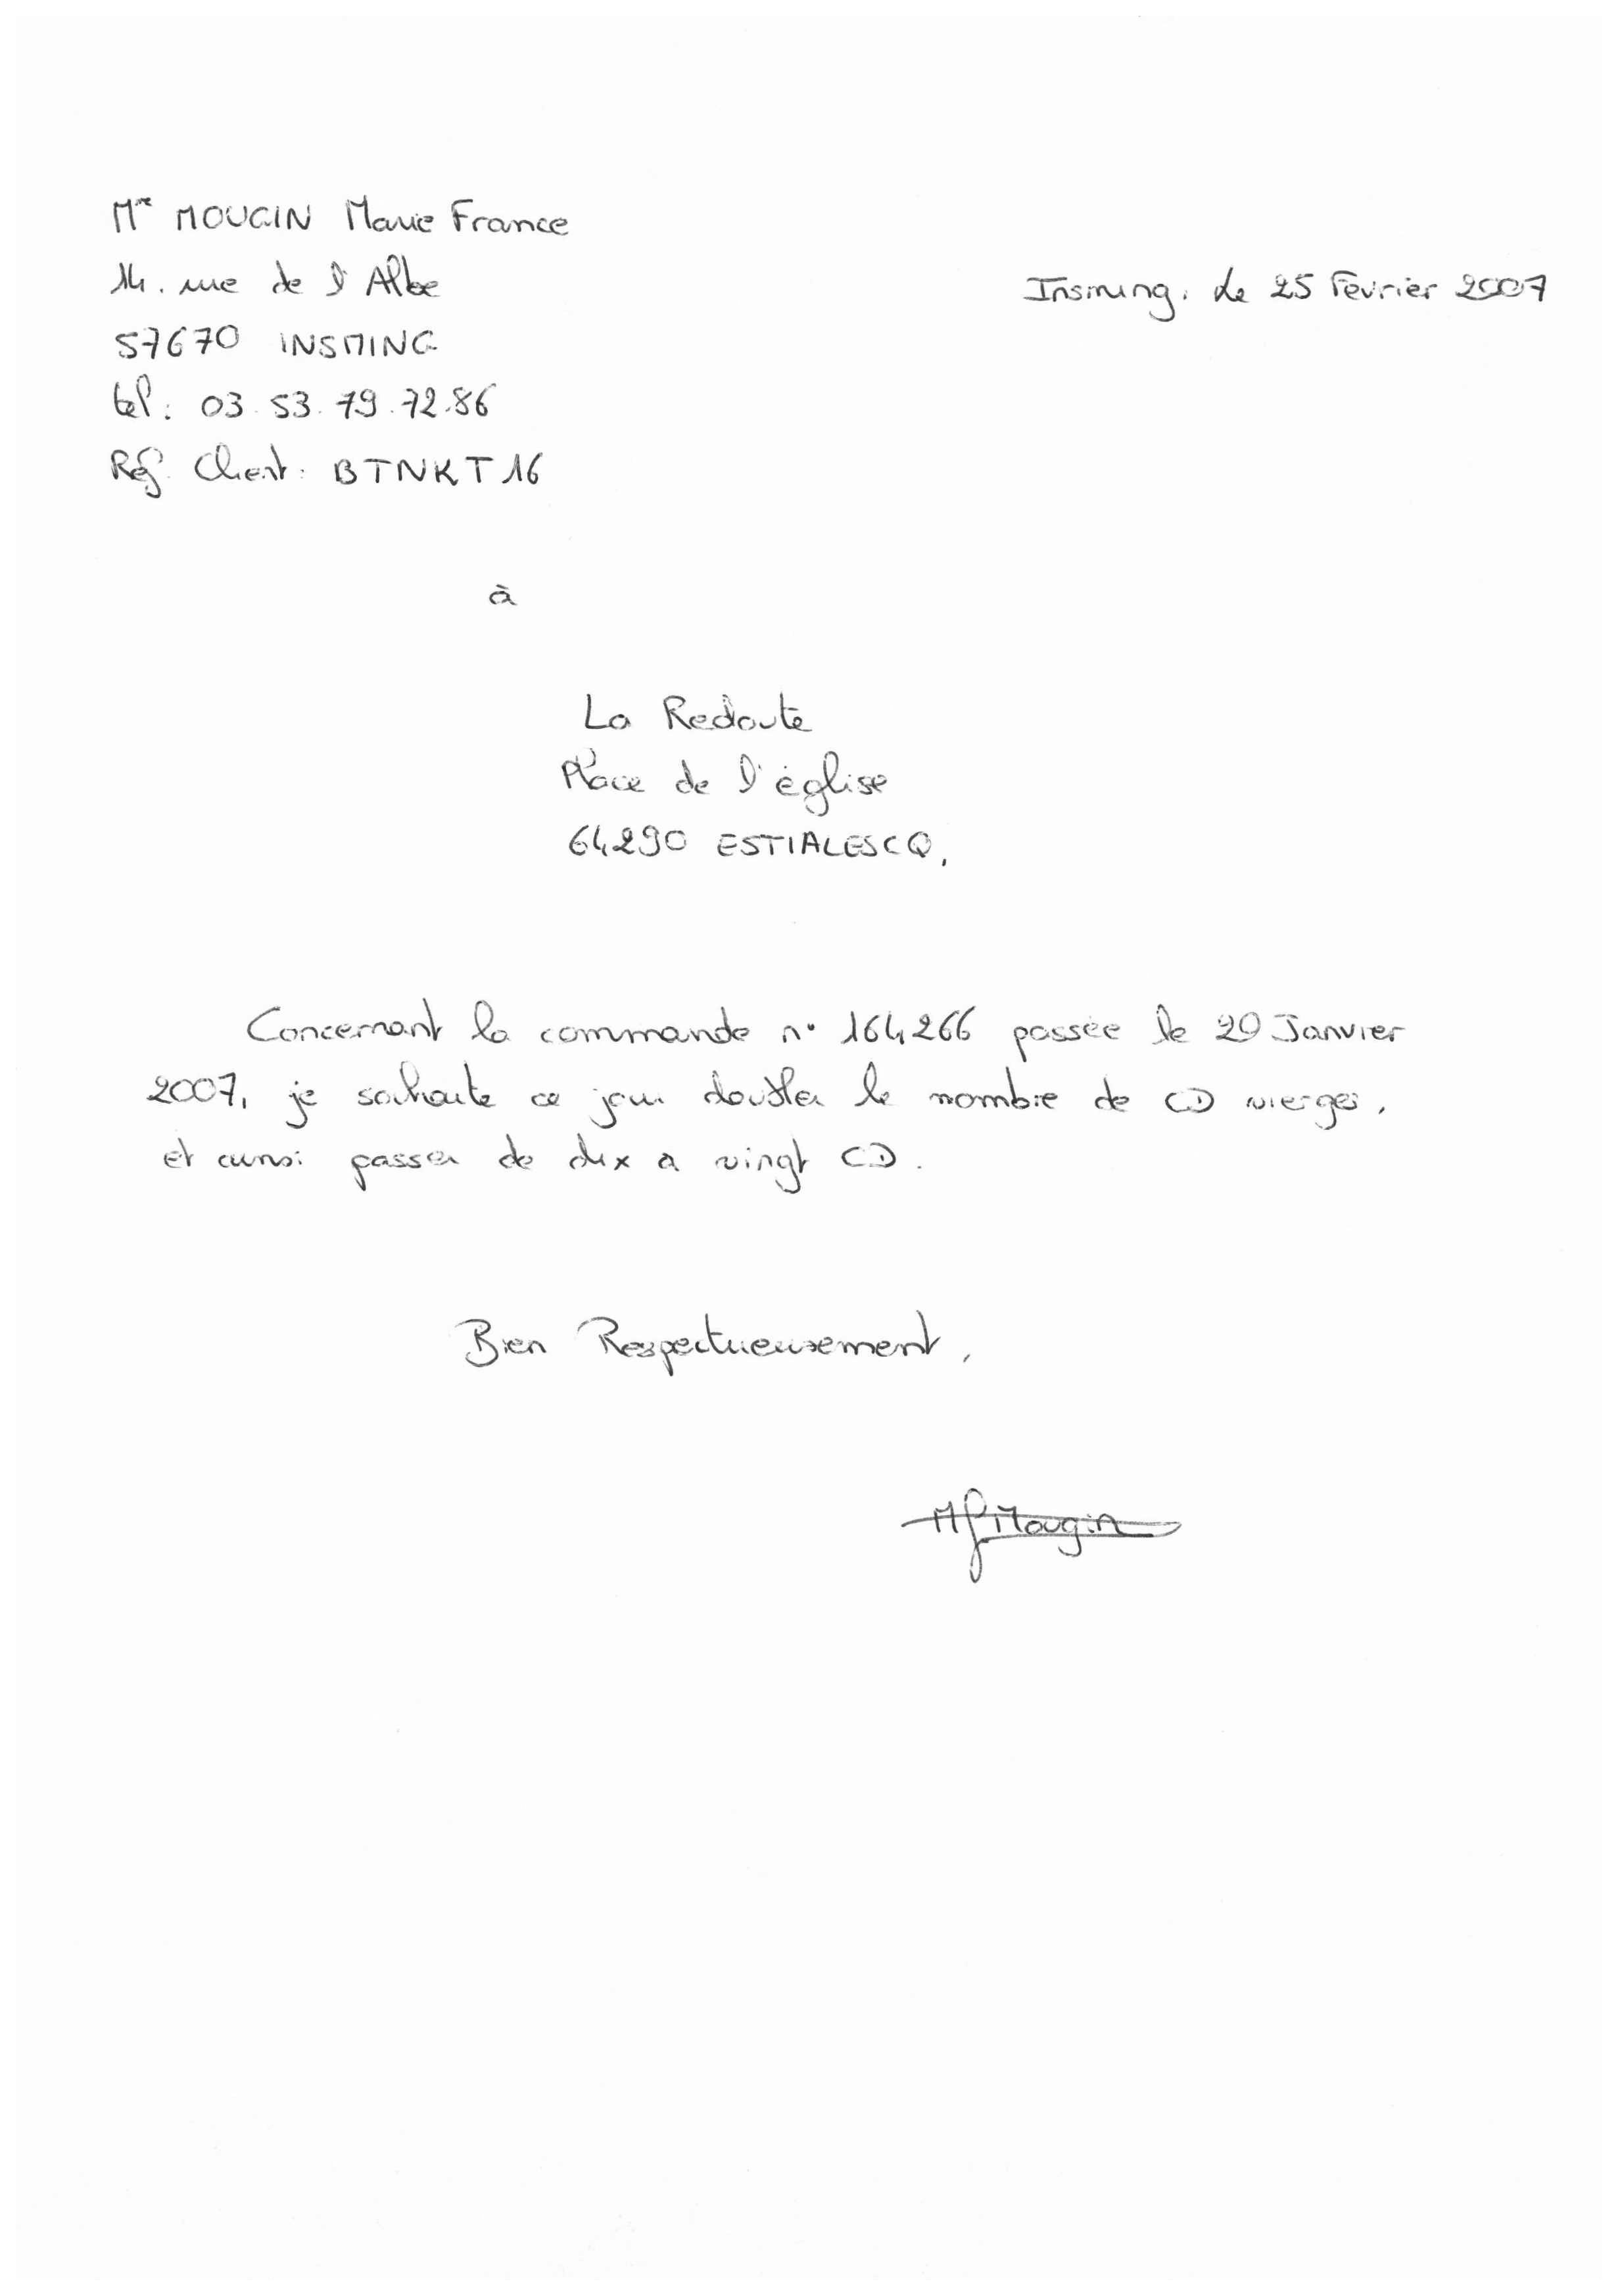 Mme MOUGIN Marie France
14. rue de l'Albe
Insming, le 25 Février 2007
57670 INSMING
tél: 03.53.79.72.86
Réf. Client: BTNKT16
à
La Redoute
Place de l'église
64290 ESTIALESCQ,
Concernant la commande n° 164266 passée le 20 Janvier
2007, je souhaite ce jour doubler le nombre de CD vierges,
et ainsi passer de dix a vingt CD.
Bien Respectueusement,
MfMougin